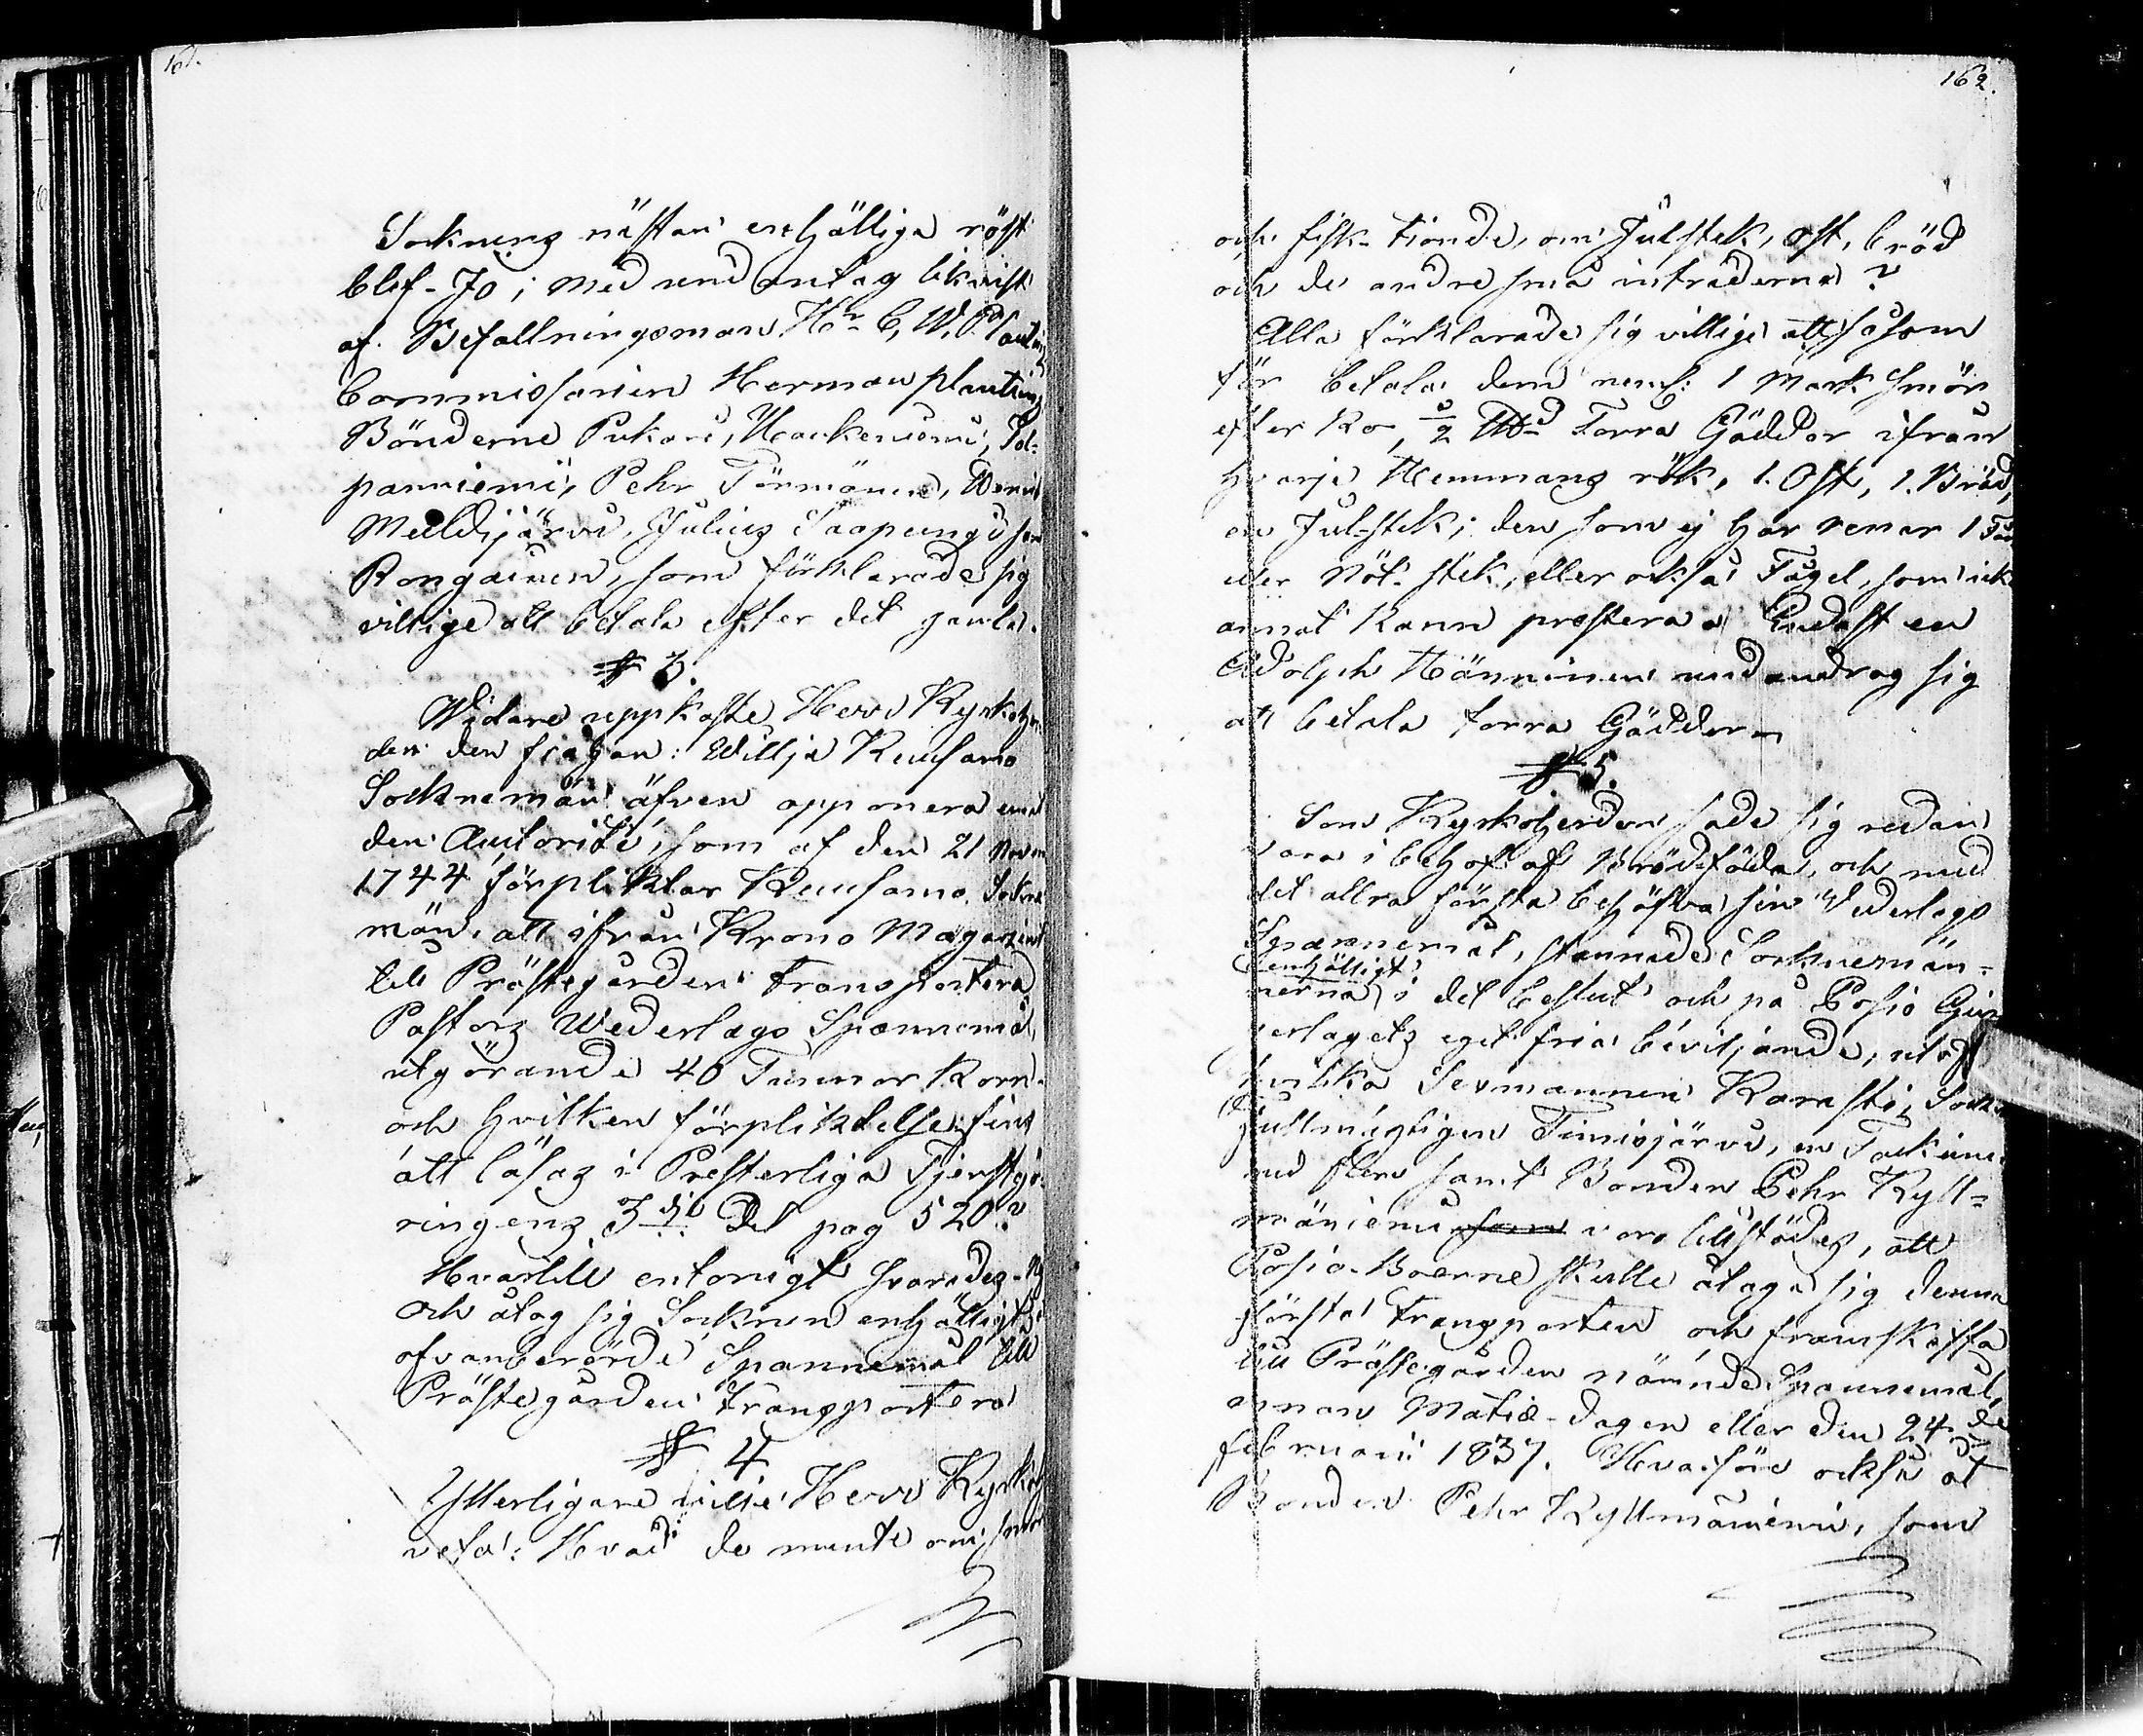 161.
Socknens nästan enhälliga röst
blef - Jo; med undantag likväl
af Befallningsman Hr C. W. Planting
Commissarien Herman Planting
Bönderne Pukari, Hackeniemi, Tol-
panniemi, Pehr Törmänen,
Meldijärvi, Julius Saapunki
Rongainen, som förklarade sig
villige att betala efter det gamla.
§ 3.
Widare uppkaste Herr Kyrkoher-
den den frågan: Willja Kuusamo
Socknemän äfven opponera emot
den Autorité, som af den 21 Novem
1744 förpliktar Kuusamo Sockne
män, att ifrån Krono Magazinet
till Prästegården transportera
Pastors Wederlags Spannemål
utgörande 40 Tunnor Korn.
och hvilken förpliktelse fins
att läsas i Presterliga Tjenstgö-
ringens 3dje Del pag 520?
Hvartill entonigt svarades - Nej
och åtog sig Socknen enhälligt
ofvanberörde Spannemål till
Prästegården transportera
§ 4
Ytterligare ville Herr Kyrkoh
veta: Hvad de mente om smör
162.
och fisk-tionde, om Julstek, ost, bröd
och de andre små intraderna?
Alla förklarade sig villige att såsom
för betala dem neml: 1 Mark Smör
efter Ko, ½ Torra Gäddor ifrån
hvarje Hemmans rök, 1. Ost, 1. Bröd,
en Jul-stek; den som ej har renar 1 Får
eller Nöt-stek, eller också Fågel, som icke
annat kann prestera. Endast en
Adolph Hänninen undandrog sig
att betala torra Gäddor
§ 5.
Som Kyrkoherden sade sig redan
vara i behof af Brödföda, och med
det allra första behöfva sin Wederlags
Spannemål, stannade Sockneman-
nerna enhälligt i det beslut och på Posio Gin
erlagets eget fria beviljande,
hvilka Sexmannen Karasti, Sockne
Fullmägtigen Timisjärvi, en
med flere samt Bonden Pehr Kyll-
mäniemi som voro tillstädes, att
Posio-Boerne skulle åtaga sig denna
första transporten och framskaffa
till Prästegården nämnde Spannemål,
innan Matiæ-dagen eller den 24de
februarii 1837. Hvarföre också åt
Bonden Pehr Kyllmäniemi, som